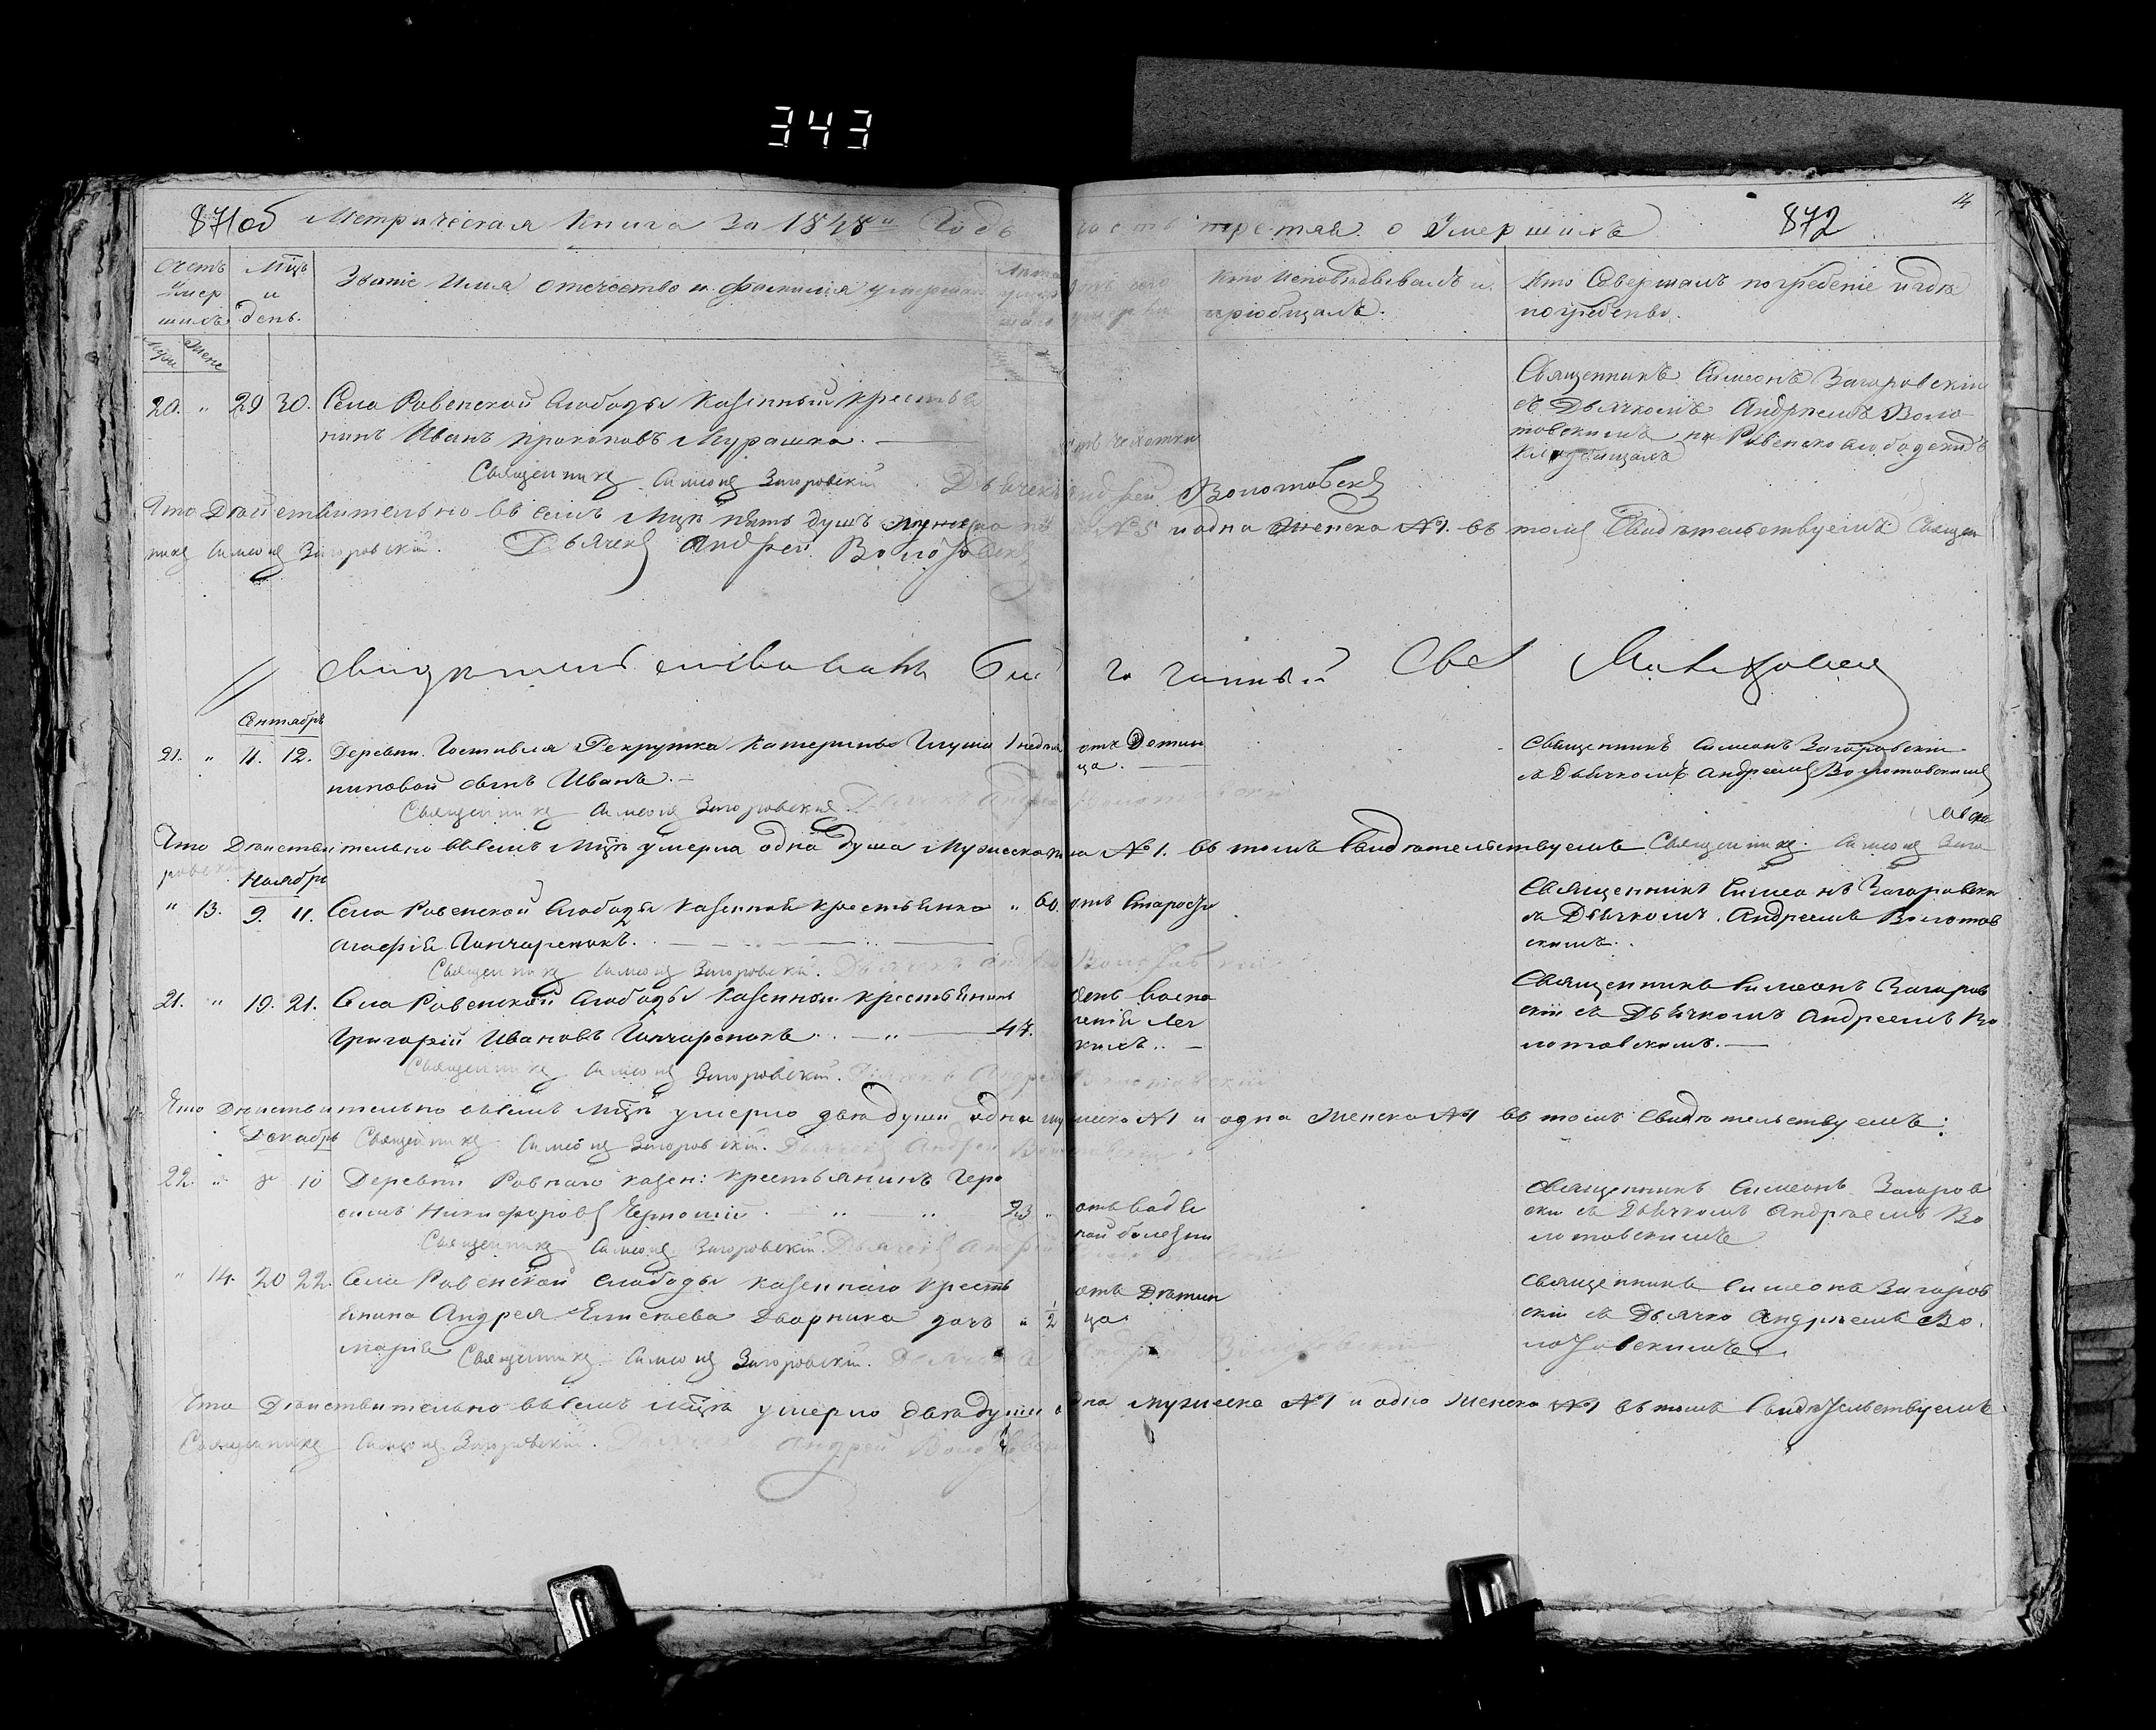 343
14
871об Метрическая Книга За 1848й Годъ часть третья о Умершихъ 872
Счетъ умер шихъ
Мцъ и день.
Званіе Имя отечество и фамилія умерша
Кто исповѣдывалъ и пріобщалъ.
Кто Совершалъ погребеніе и гдѣ погребены.
20. " 29 30. Села Ровенской Слободы казенный крестья
нинъ Иванъ Прокоповъ Мурашко. отъ чахотки
Священникъ Симеонъ Загоровскій
съ Дьячкомъ Андреемъ Воло
товскимъ на Ровенскослободскомъ
кладбищахъ
Священникъ Симеонъ Загоровскій Дьячекъ Андрей Волотовскі
Что Действительно въ семъ Мцѣ пять душъ мужеска №5 и одна Женска №1. въ томъ Свидѣтельствуемъ Священ
никъ Симеонъ Загоровскій. Дьячекъ Андрей Волотовскі
Свидѣтельствовалъ
Сентябрь
21. " 11. 12. Деревни Гостивля Рекрутки Катерины Глуша 1 недѣля отъ Дотин
никовой сынъ Иванъ. ца.
Священникъ Симеонъ Загоровскій
съ Дьячкомъ Андреемъ Волотовскимъ
Священникъ Симеонъ Загоровскій. Дьячекъ Андрей Волотовскій
Что Действительно въ семъ Мцѣ умерла одна Душа Мужеска пола №1. въ томъ Свидѣтельствуемъ Священникъ Симеонъ Заго
ровскі
Ноябрь
" 13. 9. 11. Села Ровенской Слободы казенная крестьянка " 60. отъ Старости
Агафія Гончаренокъ.
Священникъ Симеонъ Загоровскі
съ Дьячкомъ Андреемъ Волотов
скимъ.
Священникъ Симеонъ Загоровскій. Дьячекъ Андрей Волотовскій
21. " 19. 21. Села Ровенской Слободы казенной крестьянинъ
Григорій Ивановъ Гончаренокъ 47.
отъ воспа
ленія лег
кихъ.
Священникъ Симеонъ Загоров
скій съ Дьячкомъ Андреемъ Во
лотовскимъ.
Священникъ Симеонъ Загоровскій. Дьячекъ Андрей Волотовскій
Что Действительно въ семъ Мцѣ умерло двѣ души одна мужеска №1 и одна Женска №1 въ томъ Свидѣтельствуемъ:
Декабрь Священникъ Симеонъ Загоровскій. Дьячекъ Андрей Волотовскій
22. " 8 10 Деревни Ровнаго казен: крестьянинъ Гера
симъ Никифоровъ 23 " отъ водя
ной болезни
Священникъ Симеонъ Загоров
скій съ Дьячкомъ Андреемъ Во
лотовскимъ
Священникъ Симеонъ Загоровскій. Дьячекъ Андрей
" 14. 20 22. Села Ровенской Слободы казеннаго кресть
янина Андрея Елисеева Дворника дочь " 1/2
Марія
отъ Дѣтин
ца
Священникъ Симеонъ Загоров
скій съ Дьячко Андреемъ Во
лотовскимъ.
Священникъ Симеонъ Загоровскій. Дьячекъ Андрей Волотовскій
Что Действительно въ семъ Мцѣ умерло двѣ души одна мужеска №1 и одна Женска №1 въ томъ Свидѣтельствуемъ
Священникъ Симеонъ Загоровскій. Дьячекъ Андрей Волотовскі